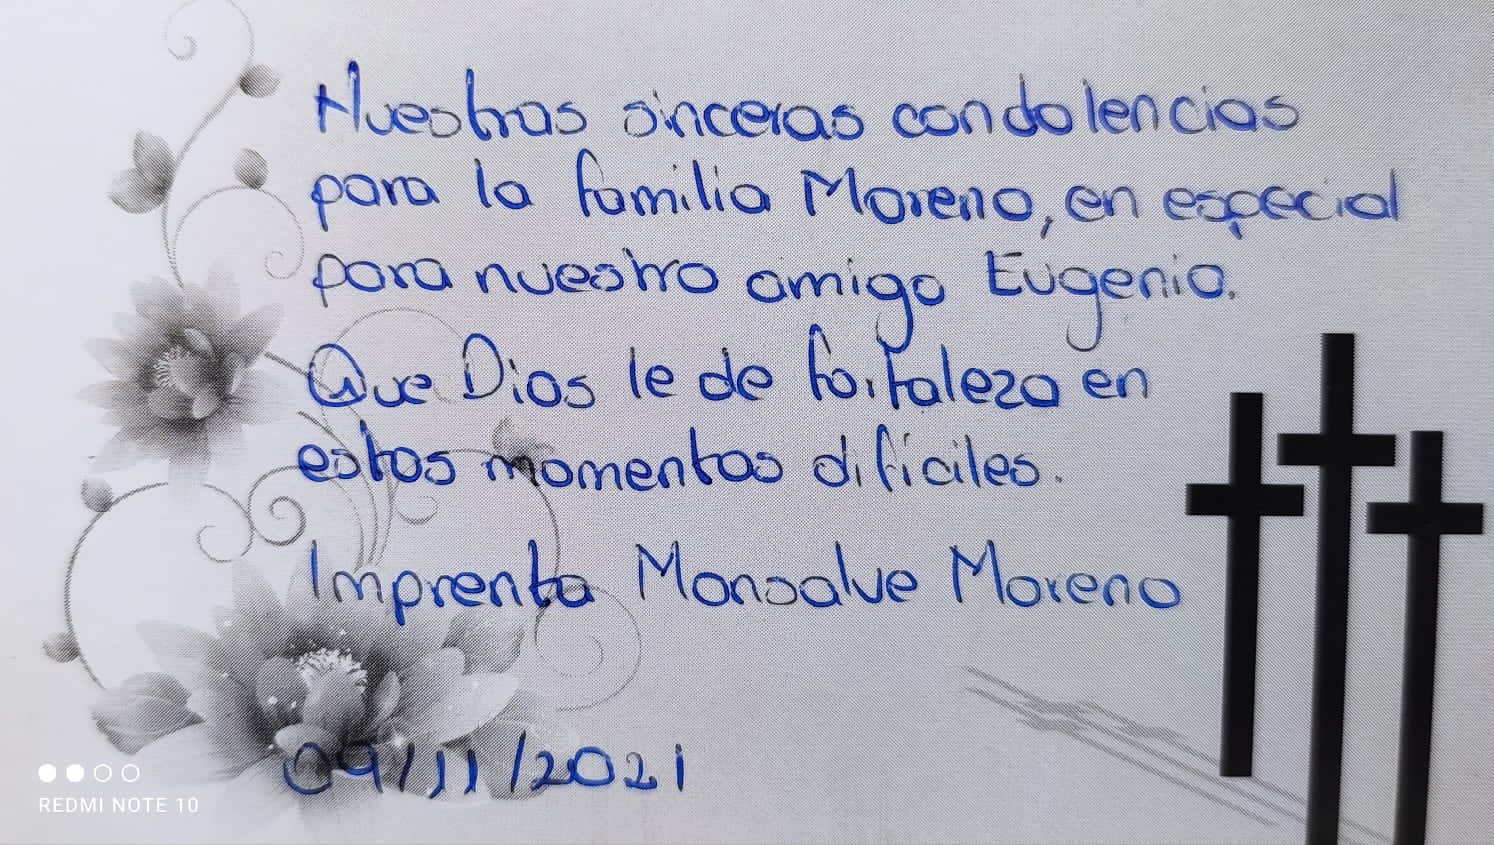 Nuestras sinceras condolencias
para la familia Moreno, en especial
para nuestro amigo Eugenio.
Que Dios le de fortaleza en
estos momentos difíciles.
Imprenta Monsalve Moreno
09/11/2021
REDMI NOTE 10